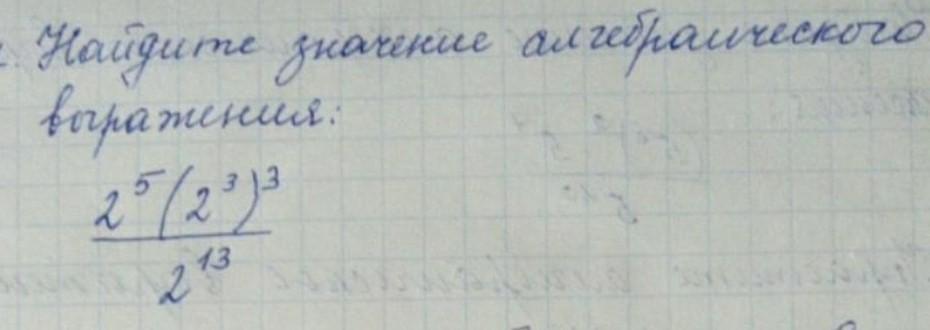 Найдите значение алгебраического
выражения:
2⁵(2³)³
2¹³